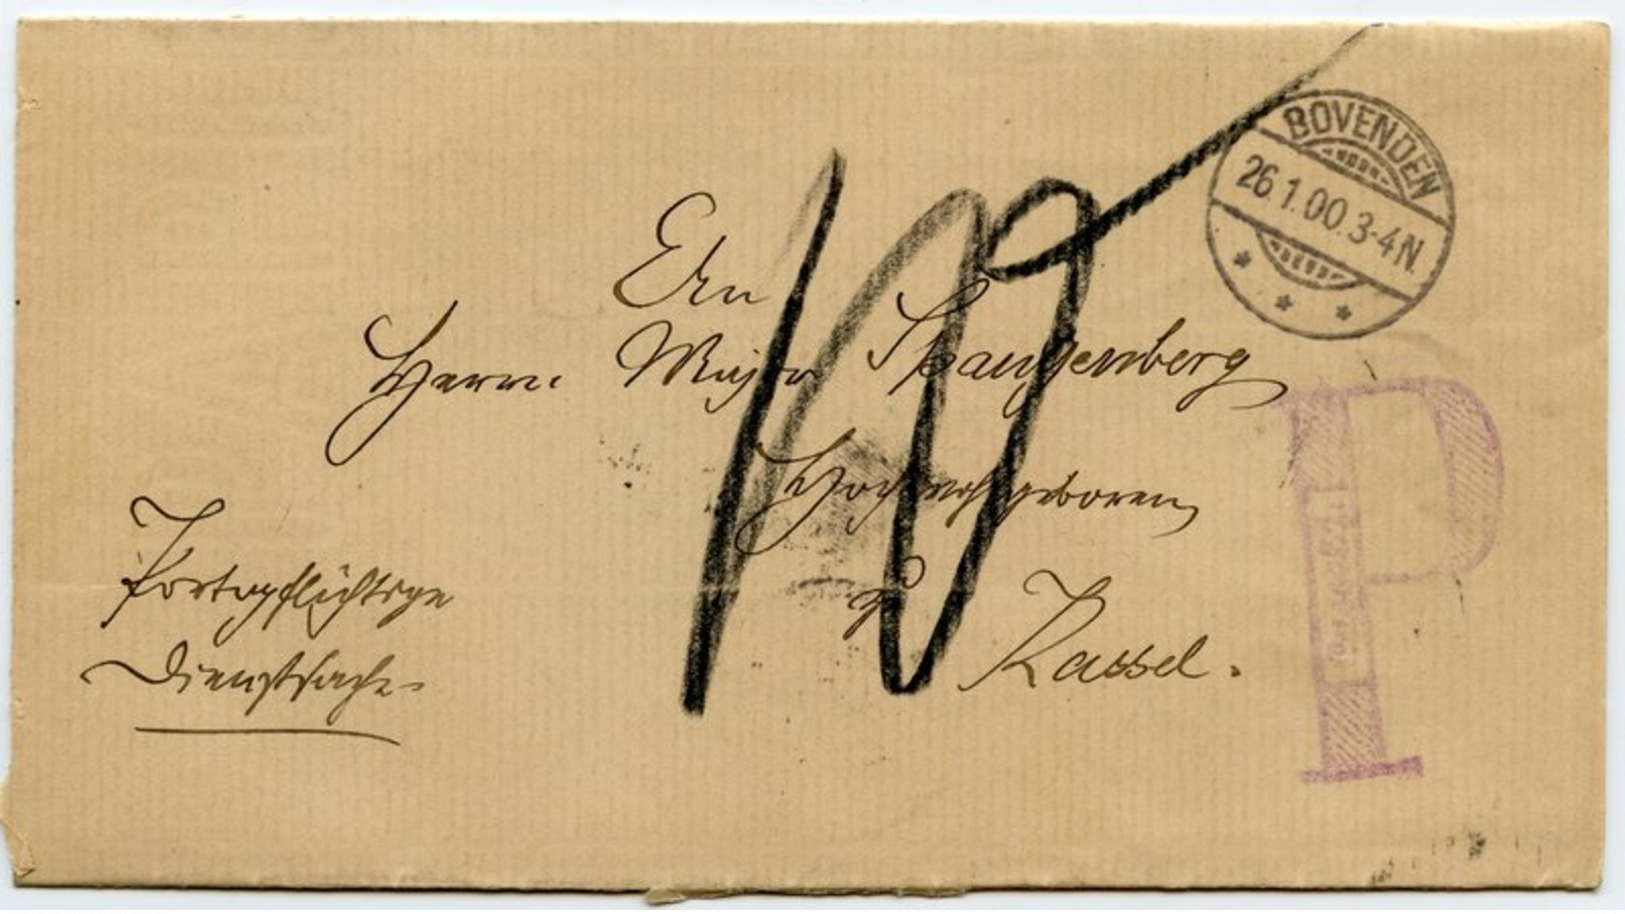 BOVENDEN
26.1.00.3-4N.
Herrn Major Spangenberg
Hochwohlgeboren
Kassel.
Portopflichtige
Dienstsache.
10
P